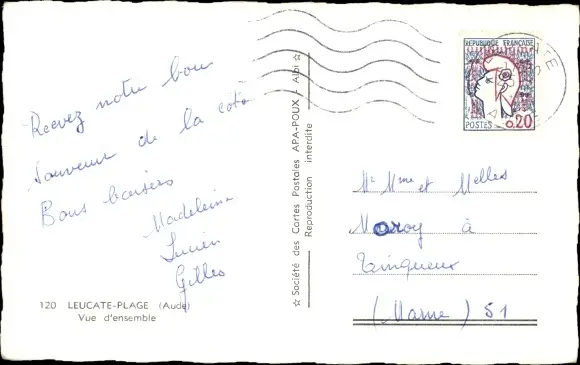 Recevez notre bon
souvenir de la côte
Bons baisers
Madeleine
Lucien
Gilles
120 LEUCATE-PLAGE (Aude)
Vue d'ensemble
☆ Société des Cartes Postales APA-POUX - Albi ☆
Reproduction interdite
REPUBLIQUE FRANÇAISE
POSTES 0.20
LEUCATE
Mr Mme et Melles
Maroy à
Tinqueux
(Marne) 51